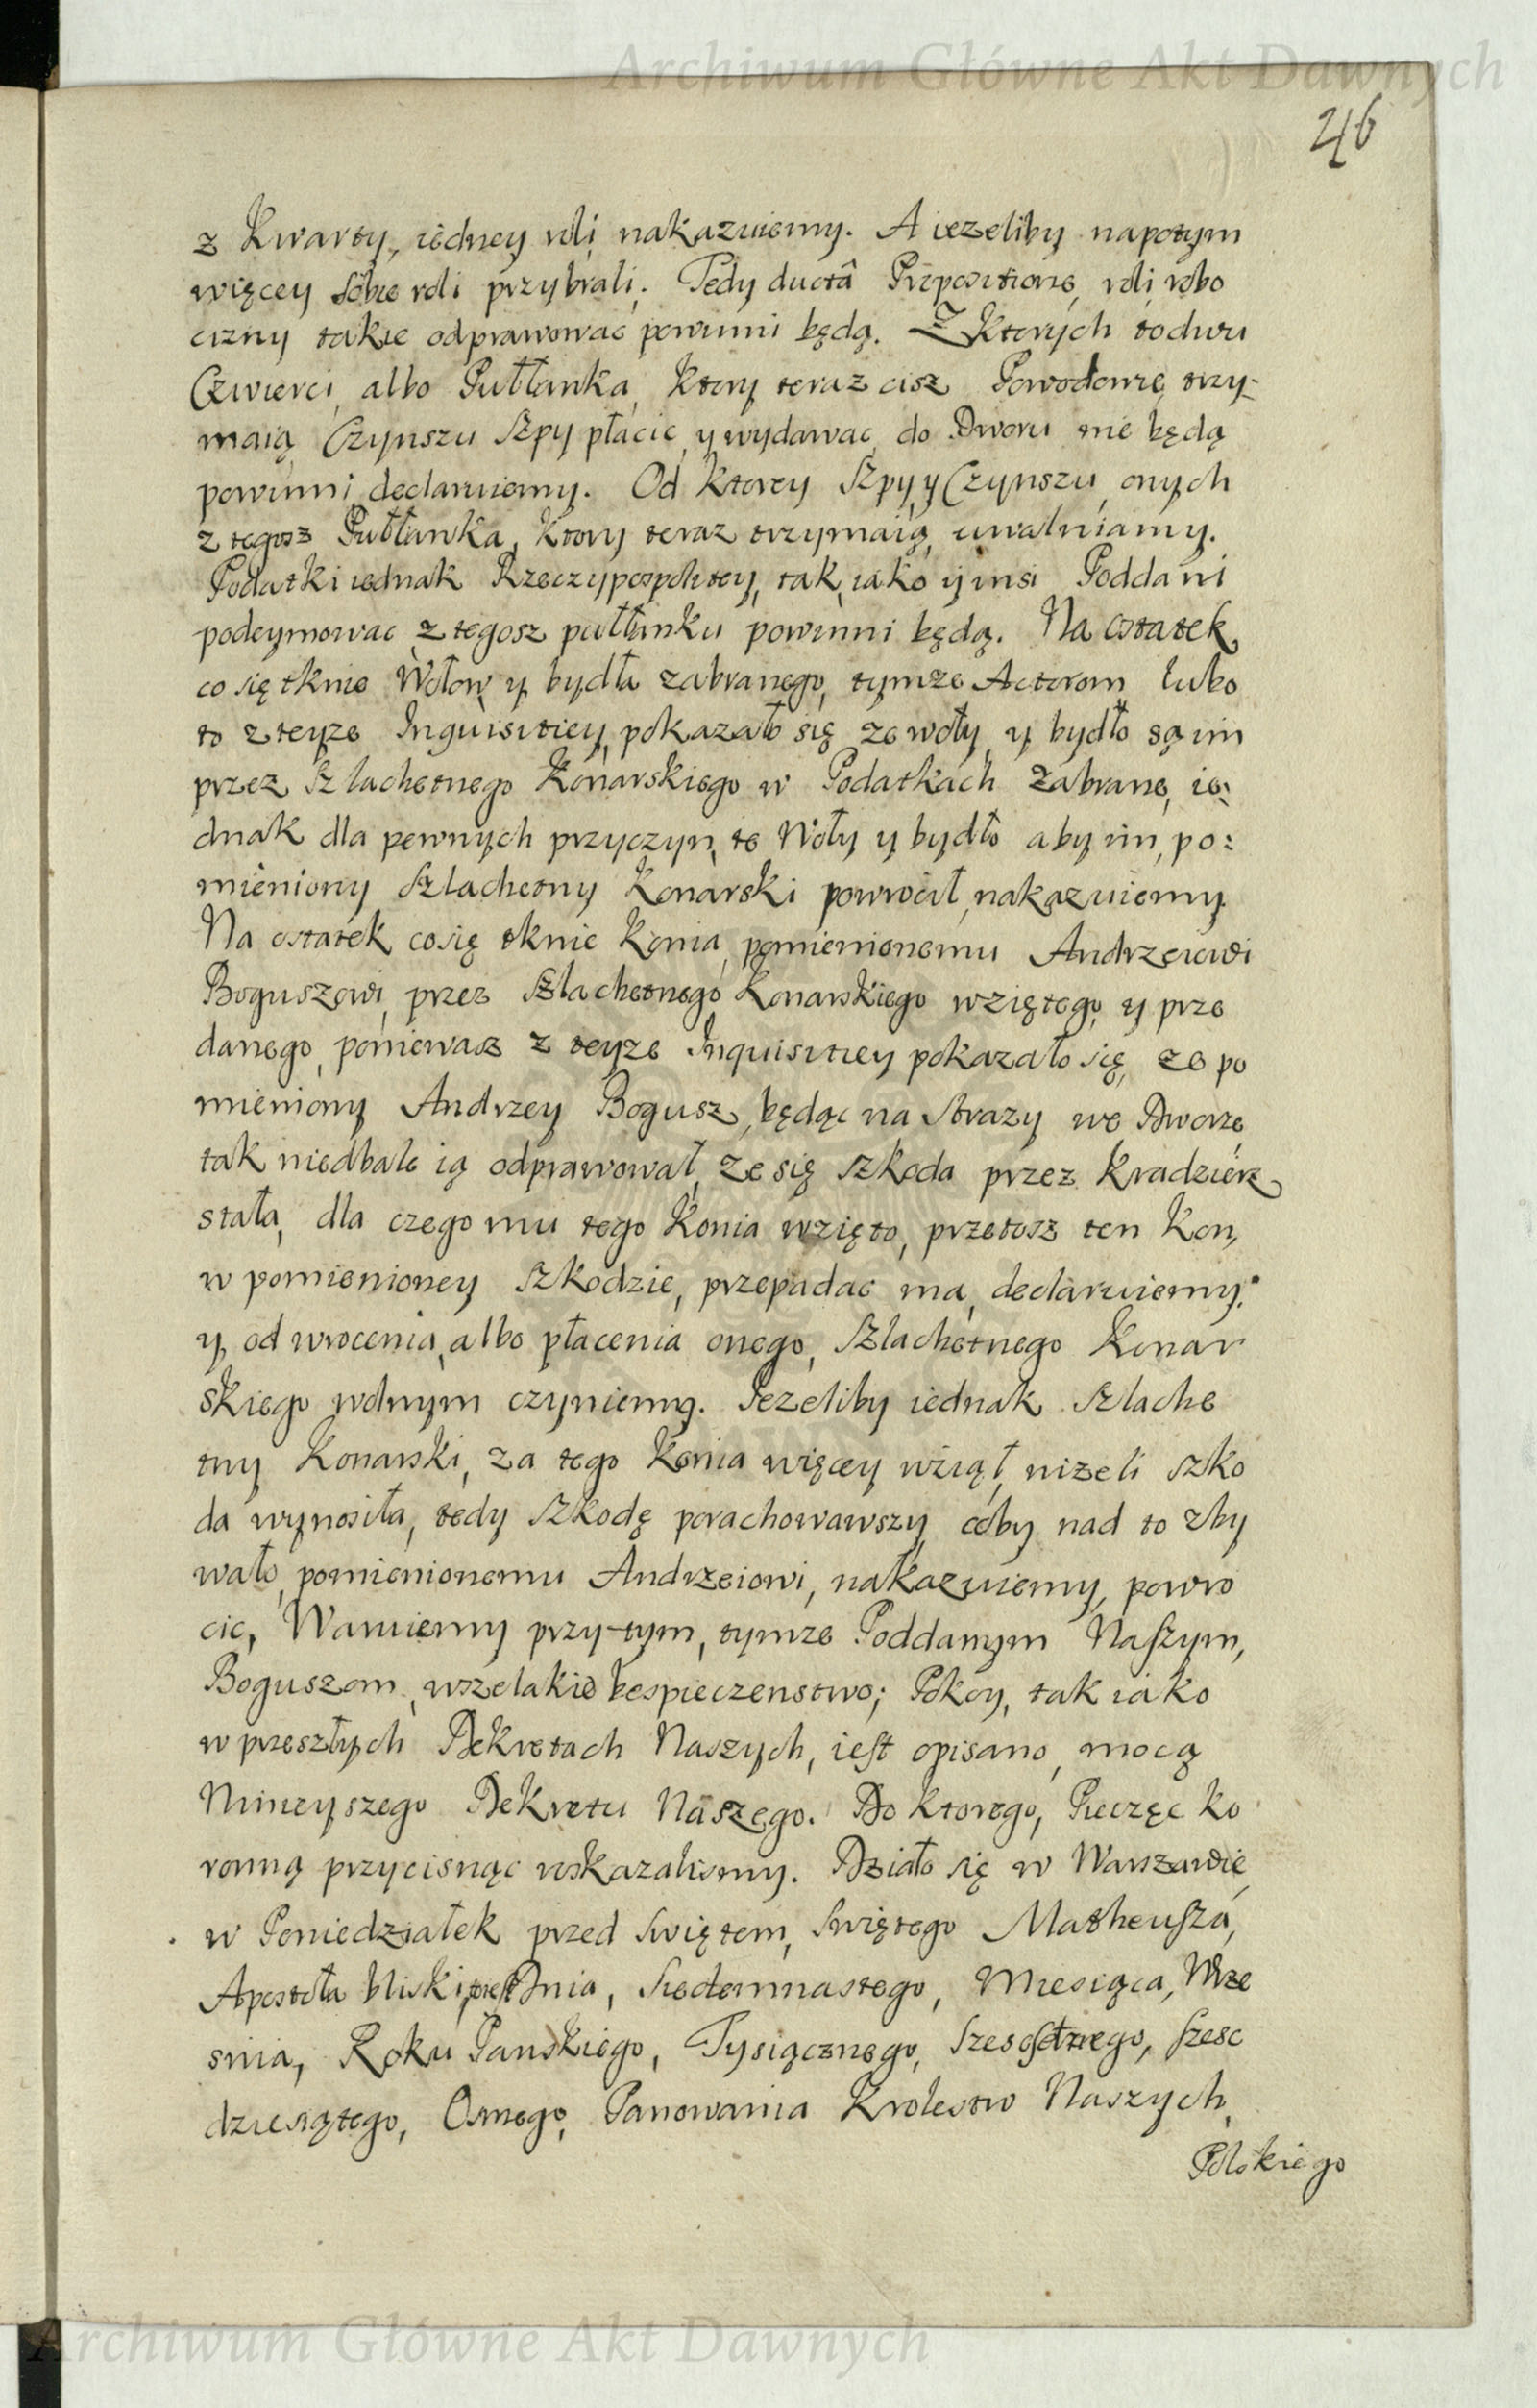 Archiwum Główne Akt Dawnych
46
z Kwarty, iedney roli nakazuiemy. A iezeliby napotym
więcey sobie roli przybrali. Tedy ducta Proportione, roli robo
cizny takie odprawowac powinni będą. Z Ktorych to dwu
Czwierci, albo Pułłanka, Ktory teraz cisz Powodowie trzy-
maią, Czynszu Szpy płacic, y wydawac, do Dworu nie będą
powinni declaruiemy. Od Ktorey Szpy y Czynszu, onych
z tegosz Pułłanka, Ktory teraz trzymaią, uwalniamy.
Podatki iednak Rzeczypospolitey, tak, iako y insi Poddani
podeymowac z tegosz pułłanku powinni będą. Na ostatek
co się tknie Wołow y bydła zabranego, tymze Actorom lubo
to z teyze Inquisitiey pokazało się ze woły y bydło są im
przez Szlachetnego Konarskiego w Podatkach zabrane, ie,
dnak dla pewnych przyczyn, te Woły y bydło aby im, po:
mieniony Szlachetny Konarski powrocił, nakazuiemy
Na ostatek cosię tknie Konia, pomienionemu Andrzeiowi
Boguszowi, przez Szlachetnego Konarskiego wziętego, y prze
danego, poniewasz z teyze Inquisitiey pokazało się, ze po
mieniony Andrzey Bogusz, będąc na Strazy we Dworze,
tak niedbale ią odprawował, ze się Szkoda przez Kradziez
stała, dla czego mu tego Konia wzięto, przetosz ten Kon,
w pomienioney Szkodzie, przepadac ma, declaruiemy.
y, od wrocenia, albo płacenia onego, Szlachetnego Konar
skiego wolnym czyniemy. Iezeliby iednak Szlache
tny Konarski, za tego Konia więcey wziął, nizeli szko
da wynosiła, tedy Szkodę porachowawszy, coby nad to zby
wało, pomienionemu Andrzeiowi, nakazuiemy, powro
cic, Waruiemy przy-tym, tymze Poddanym Naszym,
Boguszom, wszelakie bespieczenstwo; Pokoy, tak iako
w przeszłych Dekretach Naszych, iest opisano, mocą
Ninieyszego Dekretu Naszego. Do Ktorego, Pieczęc ko
ronną przycisnąc roskazalismy. Działo się w Warszawie,
w Poniedziałek przed Swiętem, Swiętego Matheusza,
Apostoła bliski, iest Dnia, Siedemnastego, Miesiąca, Wrze
snia, Roku Panskiego, Tysiącznego, Szescsetnego, szesc
dziesiątego, Osmego, Panowania Krolestw Naszych,
Polskiego
Archiwum Główne Akt Dawnych